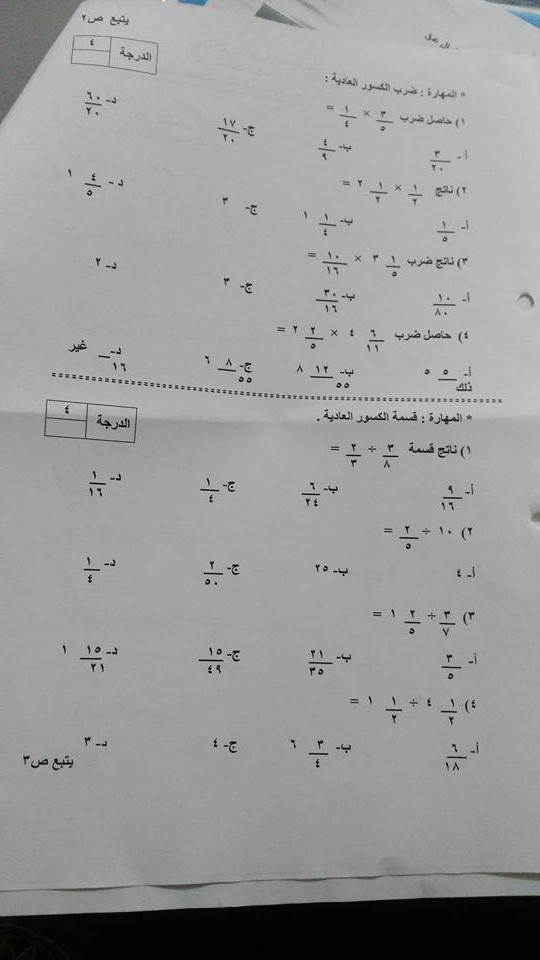 يتبع ص٢
الدرجة ٤
* المهارة : ضرب الكسور العادية :
١) حاصل ضرب ٣/٥ × ١/٤ =
أ- ٣/٢٠ ب- ٤/٩ ج- ١٧/٢٠ د- ٦٠/٢٠
٢) ناتج ١/٢ × ١/٢ ٢ =
أ- ١/٥ ب- ١/٤ ١ ج- ٣ د- ٤/٥ ١
٣) ناتج ضرب ١/٥ ٣ × ١٠/١٦ =
أ- ١٠/٨٠ ب- ٣٠/١٦ ج- ٣ د- ٢
٤) حاصل ضرب ٦/١١ ٤ × ٢/٥ ٢ =
أ- ٥/ ٥ ب- ١٢/٥٥ ٨ ج- ٨/٥٥ ٦ د- /١٦ غير
ذلك
* المهارة : قسمة الكسور العادية .
الدرجة ٤
١) ناتج قسمة ٣/٨ ÷ ٢/٣ =
أ- ٩/١٦ ب- ٦/٢٤ ج- ١/٤ د- ١/١٦
٢) ١٠ ÷ ٢/٥ =
أ- ٤ ب- ٢٥ ج- ٢/٥٠ د- ١/٤
٣) ٣/٧ ÷ ٢/٥ ١ =
أ- ٣/٥ ب- ٢١/٣٥ ج- ١٥/٤٩ د- ١٥/٢١ ١
٤) ١/٢ ٤ ÷ ١/٢ ١ =
أ- ٦/١٨ ب- ٣/٤ ٦ ج- ٤ د- ٣
يتبع ص٣